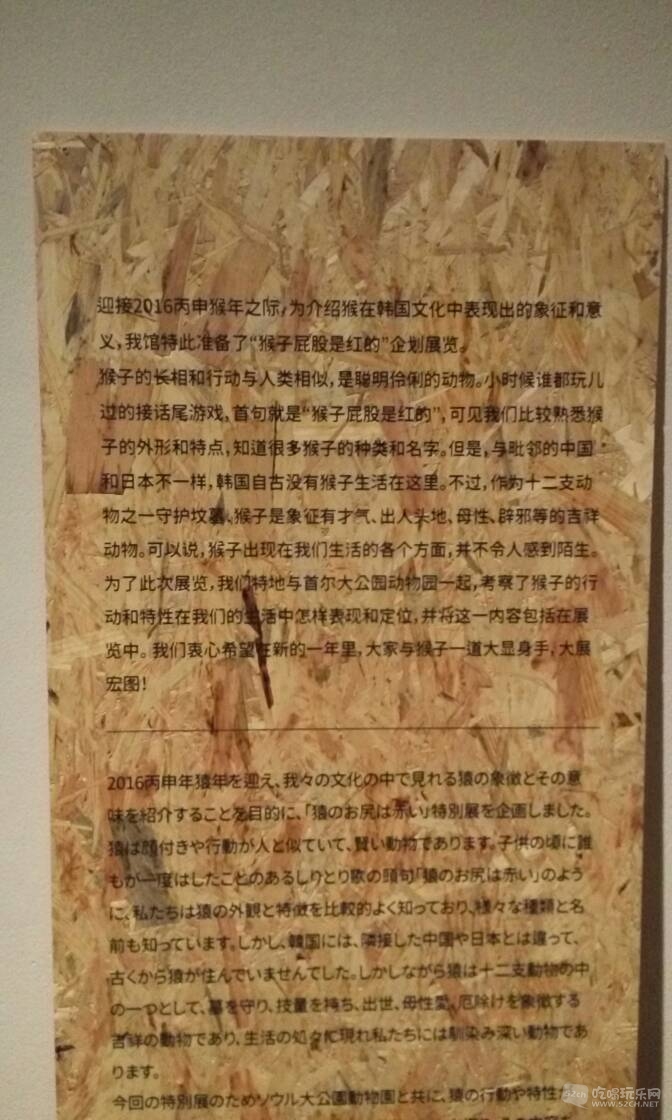 迎接2016丙申猴年之际,为介绍猴在韩国文化中表现出的象征和意
义,我馆特此准备了“猴子屁股是红的”企划展览。
猴子的长相和行动与人类相似,是聪明伶俐的动物。小时候谁都玩儿
过的接话尾游戏,首句就是“猴子屁股是红的”,可见我们比较熟悉猴
子的外形和特点,知道很多猴子的种类和名字。但是,与毗邻的中国
和日本不一样,韩国自古没有猴子生活在这里。不过,作为十二支动
物之一守护坟墓、猴子是象征有才气、出人头地、母性、辟邪等的吉祥
动物。可以说,猴子出现在我们生活的各个方面,并不令人感到陌生。
为了此次展览,我们特地与首尔大公园动物园一起,考察了猴子的行
动和特性在我们的生活中怎样表现和定位,并将这一内容包括在展
览中。我们衷心希望在新的一年里,大家与猴子一道大显身手,大展
宏图!
2016丙申年猿年を迎え、我々の文化の中で見れる猿の象徴とその意
味を紹介することを目的に、「猿のお尻は赤い」特別展を企画しました。
猿は顔付きや行動が人と似ていて、賢い動物であります。子供の頃に誰
もが一度はしたことのあるしりとり歌の頭句「猿のお尻は赤い」のよう
に、私たちは猿の外観と特徴を比較的よく知っており、様々な種類と名
前も知っています。しかし、韓国には、隣接した中国や日本とは違って、
古くから猿が住んでいませんでした。しかしながら猿は十二支動物の中
の一つとして、墓を守り、技量を持ち、出世、母性愛、厄除けを象徴する
吉祥の動物であり、生活の処々に現れ私たちには馴染み深い動物であ
ります。
今回の特別展のためソウル大公園動物園と共に、猿の行動や特性が
吃喝玩乐网
WWW.52CH.NET